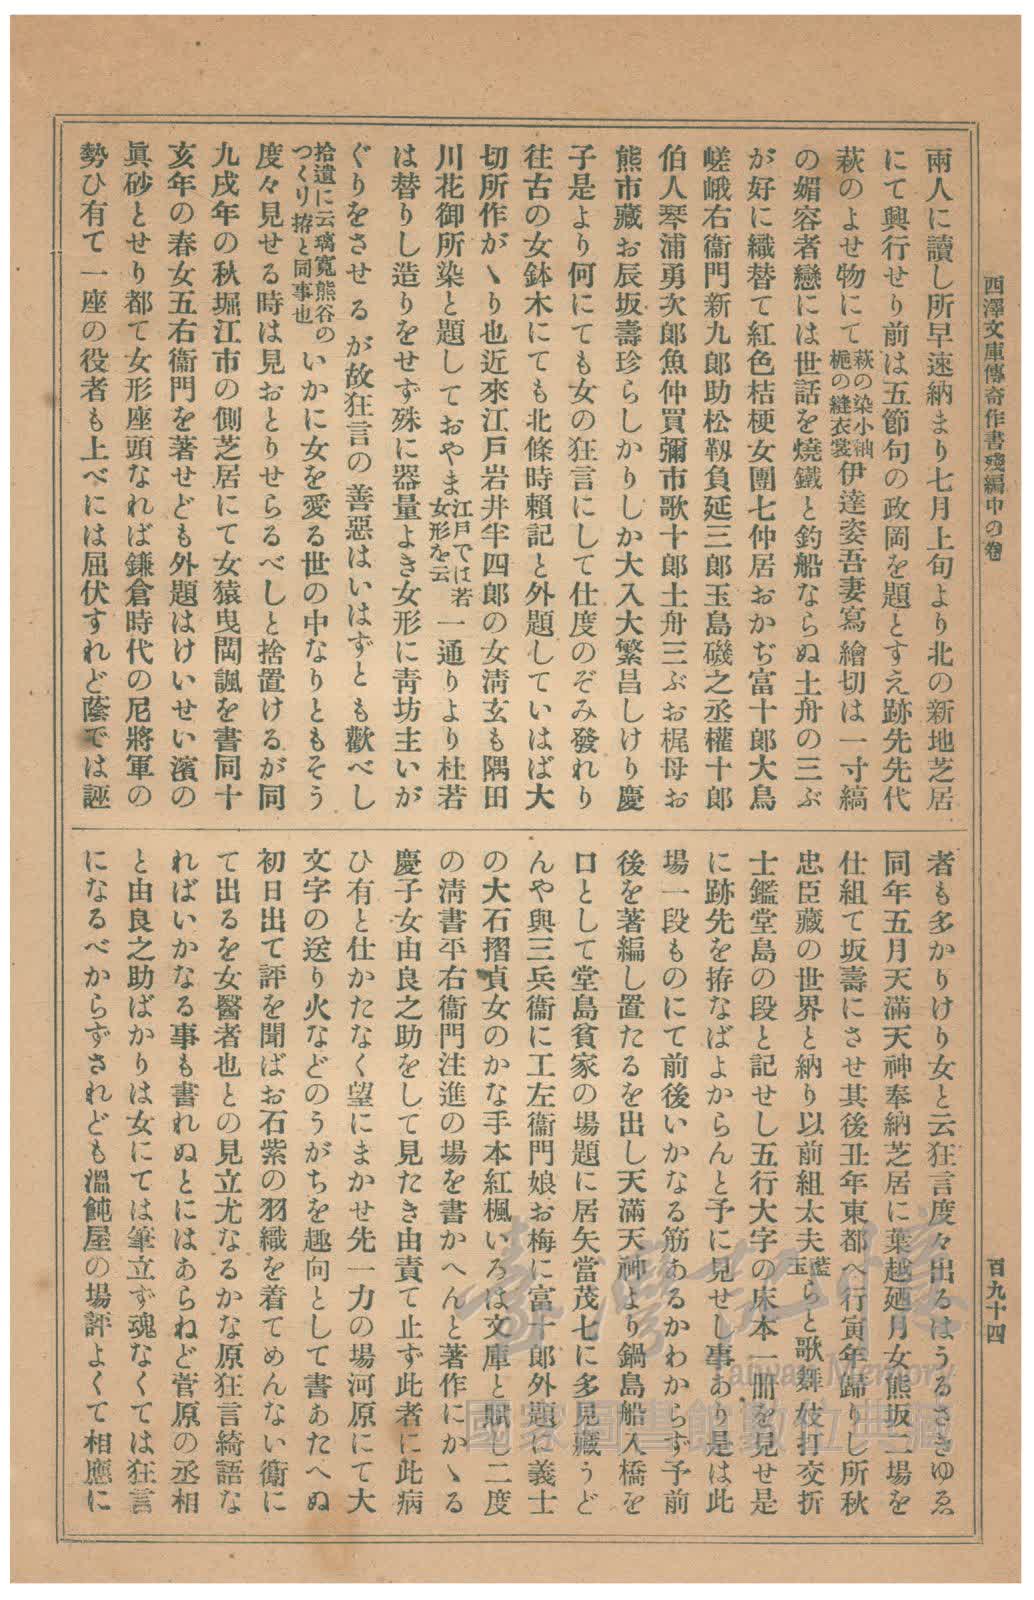 西澤文庫傳奇作書殘編中の卷
百九十四
兩人に讀し所早速納まり七月上旬より北の新地芝居
にて興行せり前は五節句の政岡を題とすえ跡先先代
萩のよせ物にて萩の染小袖桅の縫衣裳伊達姿吾妻寫繪切は一寸縞
の媚容者戀には世話を燒鐵と釣船ならぬ土舟の三ぶ
が好に織替て紅色桔梗女團七仲居おかぢ富十郎大鳥
嵯峨右衞門新九郎助松靱負延三郎玉島磯之丞權十郎
伯人琴浦勇次郎魚仲買彌市歌十郎土舟三ぶお梶母お
熊市藏お辰坂壽珍らしかりしか大入大繁昌しけり慶
子是より何にても女の狂言にして仕度のぞみ發れり
往古の女鉢木にても北條時賴記と外題していはば大
切所作がゝり也近來江戸岩井半四郎の女淸玄も隅田
川花御所染と題しておやま江戸では若女形を云一通りより杜若
は替りし造りをせず殊に器量よき女形に靑坊主いが
ぐりをさせるが故狂言の善惡はいはずとも歡べし
拾遺に云璃寬熊谷のつくり拵と同事也いかに女を愛る世の中なりともそう
度々見せる時は見おとりせらるべしと捨置けるが同
九戌年の秋堀江市の側芝居にて女猿曳門諷を書同十
亥年の春女五右衞門を著せども外題はけいせい濱の
眞砂とせり都て女形座頭なれば鎌倉時代の尼將軍の
勢ひ有て一座の役者も上べには屈伏すれど蔭では誣
者も多かりけり女と云狂言度々出るはうるさきゆゑ
同年五月天滿天神奉納芝居に葉越廼月女熊坂二場を
仕組て坂壽にさせ其後丑年東都へ行寅年歸りし所秋
忠臣藏の世界と納り以前組太夫藍玉らと歌舞妓打交折
士鑑堂島の段と記せし五行大字の床本一冊を見せ是
に跡先を拵なばよからんと予に見せし事あり是は此
場一段ものにて前後いかなる筋あるかわからず予前
後を著編し置たるを出し天滿天神より鍋島船入橋を
口として堂島貧家の場題に居矢當茂七に多見藏うど
んや與三兵衞に工左衞門娘お梅に富十郎外題に義士
の大石摺貞女のかな手本紅楓いろは文庫と賦し二度
の淸書平右衞門注進の場を書かへんと著作にかゝる
慶子女由良之助をして見たき由責て止ず此者に此病
ひ有と仕かたなく望にまかせ先一力の場河原にて大
文字の送り火などのうがちを趣向として書あたへぬ
初日出て評を聞ばお石紫の羽織を着てめんない衞に
て出るを女醫者也との見立尤なるかな原狂言綺語な
ればいかなる事も書れぬとにはあらねど菅原の丞相
と由良之助ばかりは女にては筆立ず魂なくては狂言
になるべからずされども溫飩屋の場評よくて相應に
臺灣記憶
Taiwan Memory
國家圖書館數位典藏